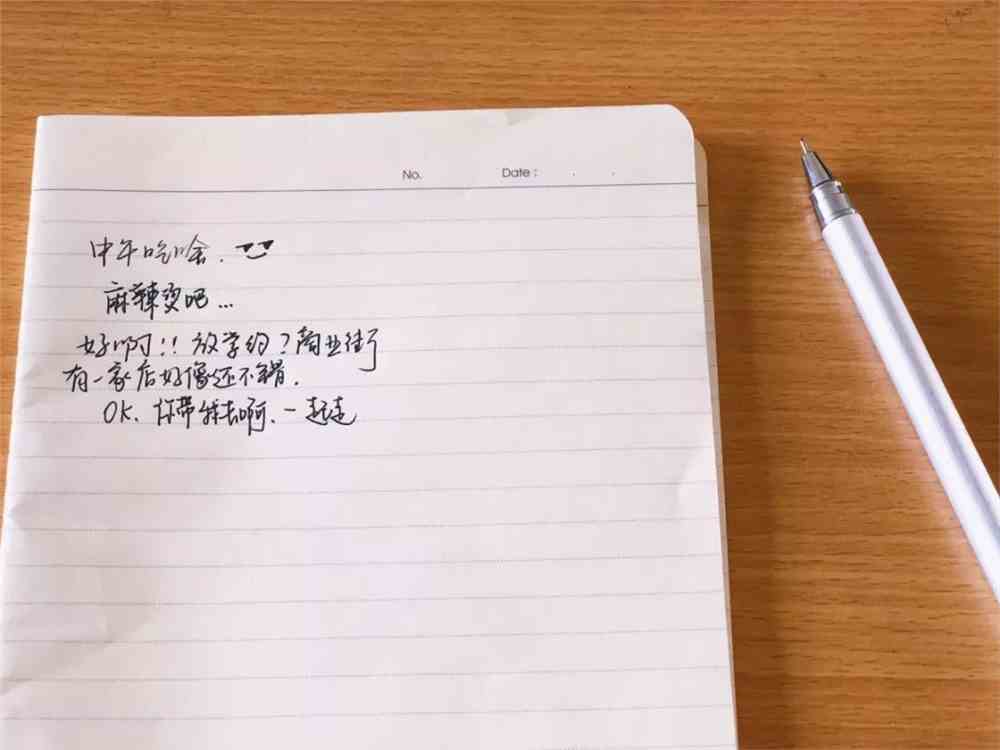 No.
Date :
中午吃啥.
麻辣烫吧...
好啊!! 放学约?商业街
有一家店好像还不错.
OK. 你带我去啊.一起走